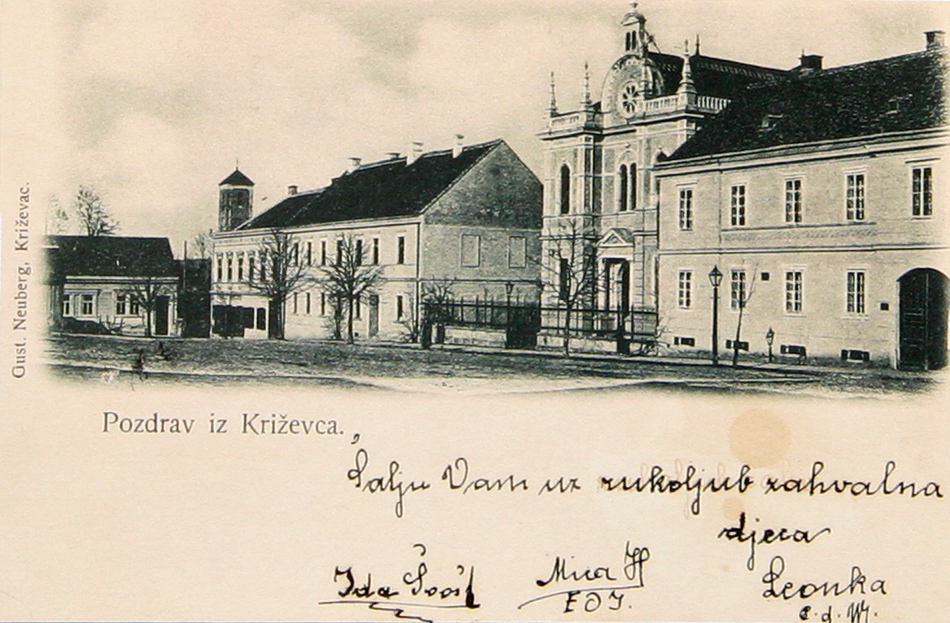 Gust. Neuberg, Križevac.
Pozdrav iz Križevca.
Šalju Vam uz rukoljub zahvalna
djeca
Ida
Mica H
Leonka